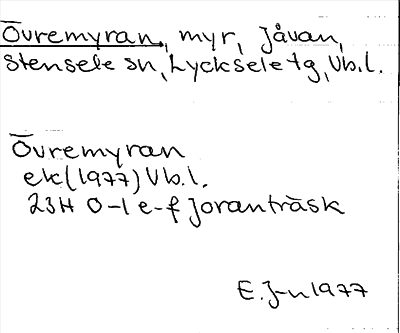 Övremyran, myr, Jåvan,
Stensele sn, Lycksele tg, Vb.l.
Övremyran
ek (1977) Vb.l.
23H 0-1 e-f Joranträsk
E.J-n 1977